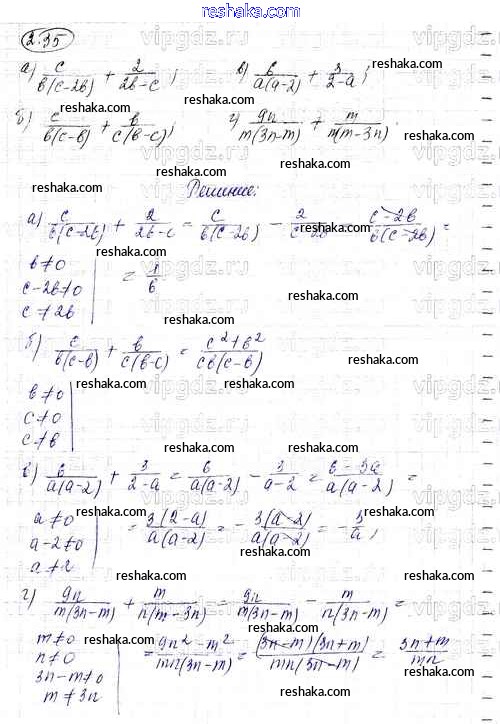 reshaka.com
2.35
а) c/(b(c-2b)) + 2/(2b-c); в) 6/(a(a-2)) + 3/(2-a);
б) c/(b(c-b)) + b/(c(b-c)); г) 9n/(m(3n-m)) + m/(n(m-3n)).
Решение:
а) c/(b(c-2b)) + 2/(2b-c) = c/(b(c-2b)) - 2/(c-2b) = (c-2b)/(b(c-2b)) =
b≠0
c-2b≠0 = 1/b
c≠2b
б) c/(b(c-b)) + b/(c(b-c)) = (c²+b²)/(cb(c-b))
b≠0
c≠0
c≠b
в) 6/(a(a-2)) + 3/(2-a) = 6/(a(a-2)) - 3/(a-2) = (6-3a)/(a(a-2)) =
a≠0
a-2≠0 = 3(2-a)/(a(a-2)) = - 3(a-2)/(a(a-2)) = - 3/a;
a≠2
г) 9n/(m(3n-m)) + m/(n(m-3n)) = 9n/(m(3n-m)) - m/(n(3n-m)) =
m≠0
n≠0 = (9n²-m²)/(mn(3n-m)) = (3n-m)(3n+m)/(mn(3n-m)) = (3n+m)/(mn)
3n-m≠0
m≠3n
reshaka.com